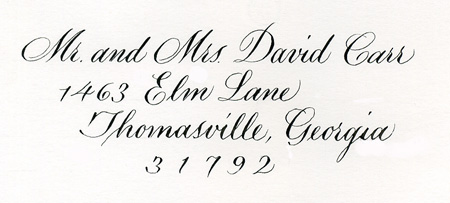 Mr. and Mrs. David Carr
1463 Elm Lane
Thomasville, Georgia
31792